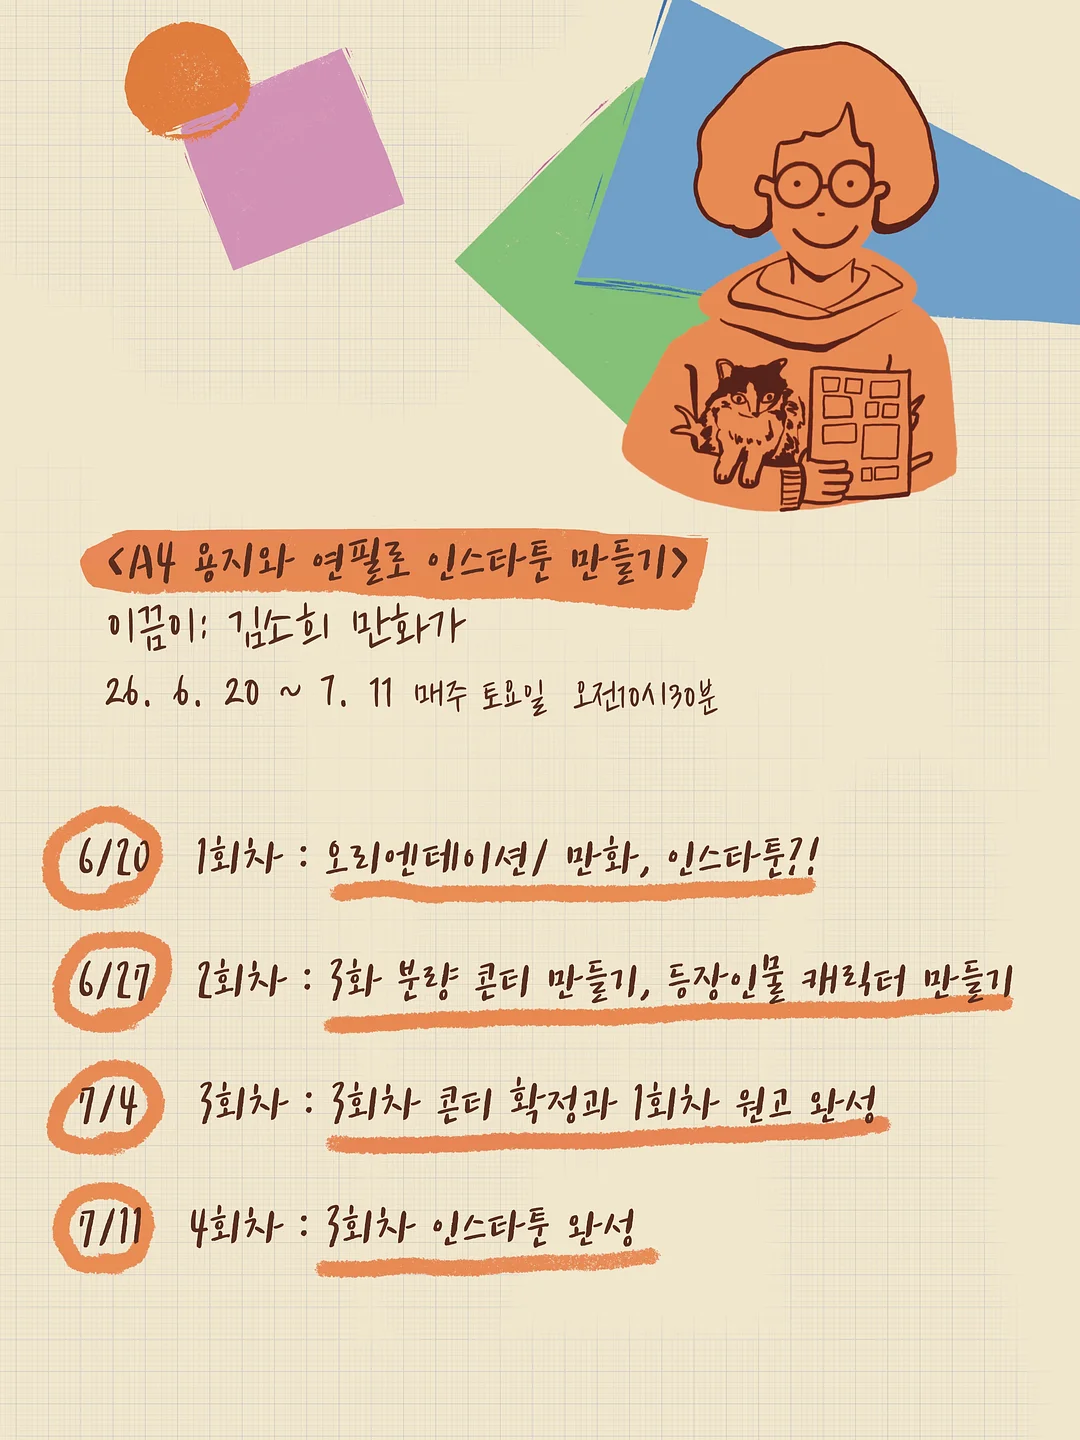 <A4 용지와 연필로 인스타툰 만들기>
이끔이: 김소희 만화가
26. 6. 20 ~ 7. 11 매주 토요일 오전10시30분
6/20 1회차 : 오리엔테이션/ 만화, 인스타툰?!
6/27 2회차 : 3화 분량 콘티 만들기, 등장인물 캐릭터 만들기
7/4 3회차 : 3회차 콘티 확정과 1회차 원고 완성
7/11 4회차 : 3회차 인스타툰 완성